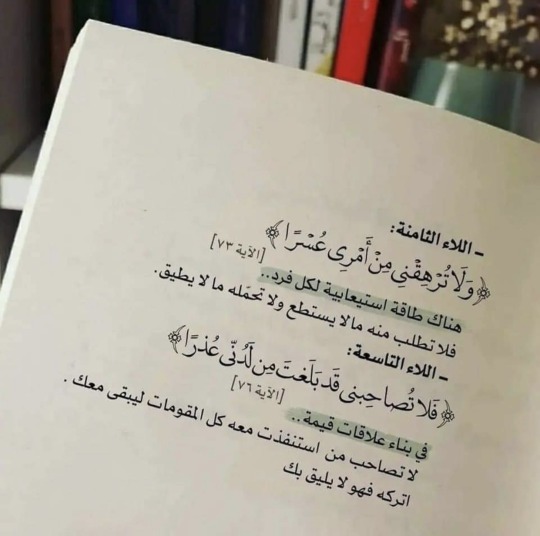 - اللاء الثامنة:
﴿وَلَا تُرْهِقْنِي مِنْ أَمْرِي عُسْرًا﴾ [الآية ٧٣]
هناك طاقة استيعابية لكل فرد..
فلا تطلب منه مالا يستطع ولا تحمّله ما لا يطيق.
- اللاء التاسعة:
﴿فَلَا تُصَاحِبنِي قَد بَلَغتَ مِن لَّدُنِّي عُذرًا﴾
[الآية ٧٦]
في بناء علاقات قيمة..
لا تصاحب من استنفذت معه كل المقومات ليبقى معك.
اتركه فهو لا يليق بك